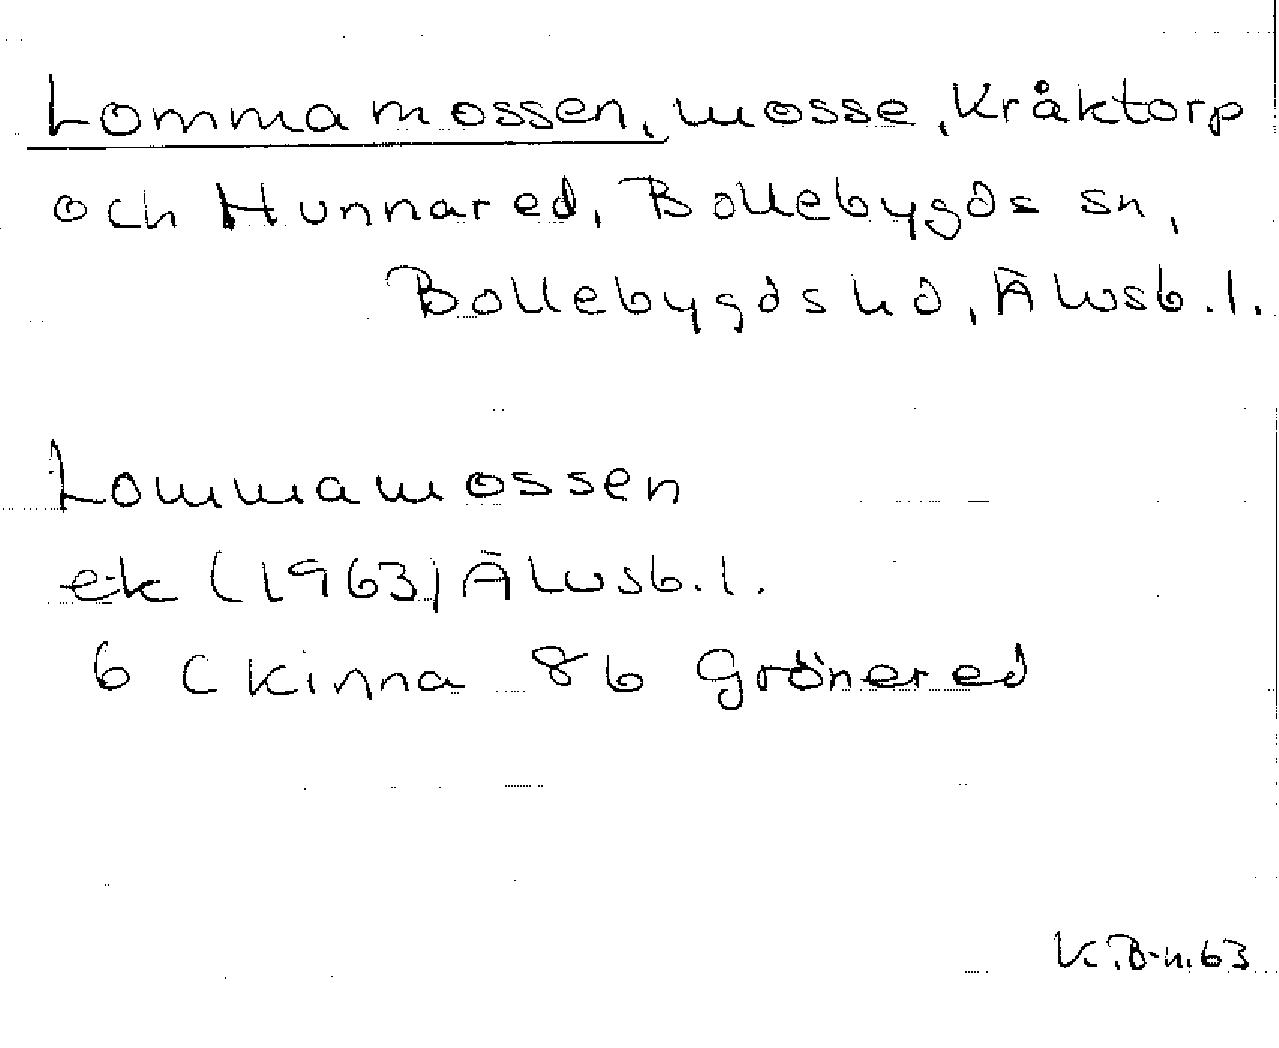 Lommamossen, mosse, Kråktorp
och Hunnared, Bollebygds sn,
Bollebygds hd, Älvsb. l.
Lommamossen
ek (1963) Älvsb. l.
6 C Kinna 8b Grönered
K.B-n. 63